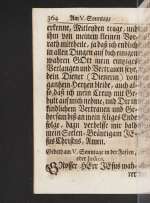 364 Am V. Sonntage
erkenne, Mitleyden trage, und
ihm von meinem kleinen Vor-
rath mittheile, ja daß ich endlich
in allen Dingen auf dich einigen
wahren GOtt mein einiges
Verlangen und Vertrauen setze,
dein Diener (Dienerin) von
gantzem Hertzen bleibe, auch al-
so, daß ich mein Creutz in Ge-
dult auf mich nehme, und Dir in
kindlichem Vertrauen und Ge-
horsam biß an mein seliges Ende
folge, dazu verhelffe mir bald
mein Seelen-Bräutigam JE-
sus Christus, Amen.
Gebät am V. Sonntage in der Fasten,
oder Judica.
GRosser HErr JEsus wah-
rer